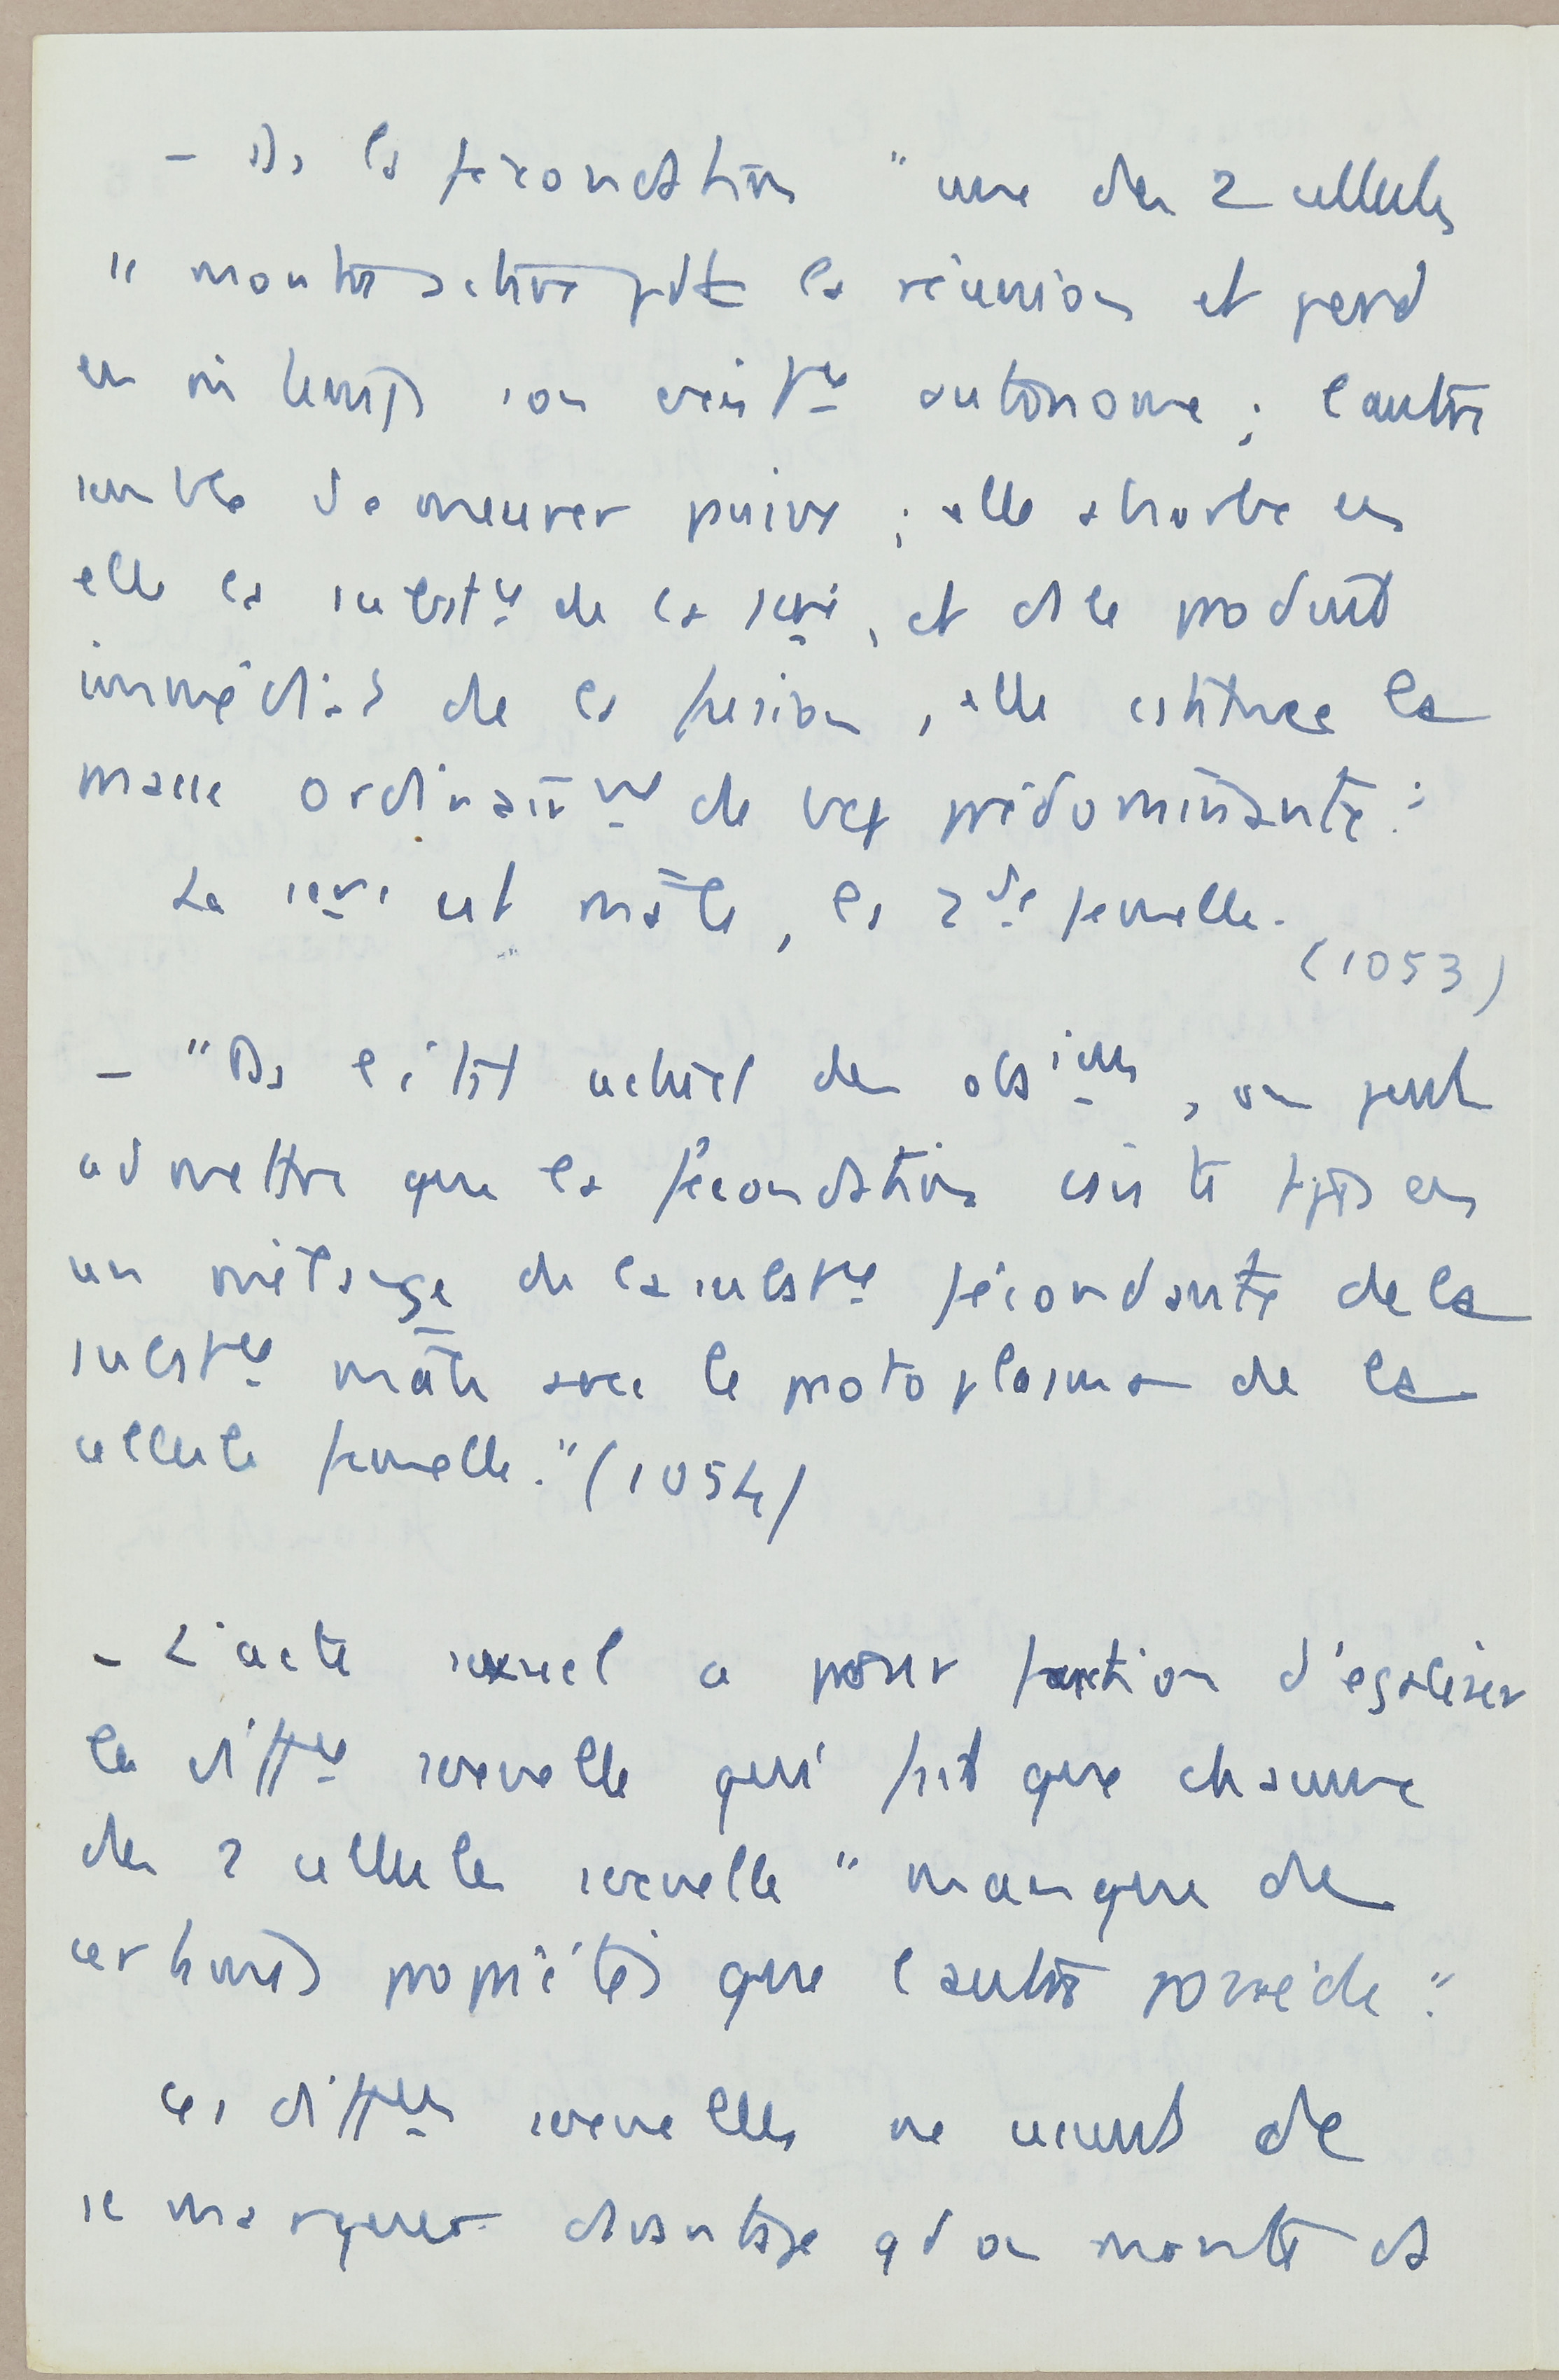 - Ds la fécondation "une des 2 cellules
se montre active pdt la réunion et perd
en m̂ temps son existce autonome ; l'autre
semble demeurer passive ; elle absorbe en
elle la substce de la 1ère, et ds le produit
immédiat de la fusion, elle constitue la
masse ordinairemt de bcp prédominante."
La 1ère est mâle, la 2de femelle.
(1053)
- "Ds l'état actuel des obsions, on peut
admettre que la fécondation consiste tjrs en
un mélange de la substce fécondante de la
substce mâle avec le protoplasma de la
cellule femelle." (1054)
- L'acte sexuel a pour fonction d'égaliser
la diffce sexuelle qui fait que chacune
des 2 cellules sexuelles "manque de
certaines propriétés que l'autre possède."
Ces diffces sexuelles ne cessent de
se marquer davantage qd on monte ds